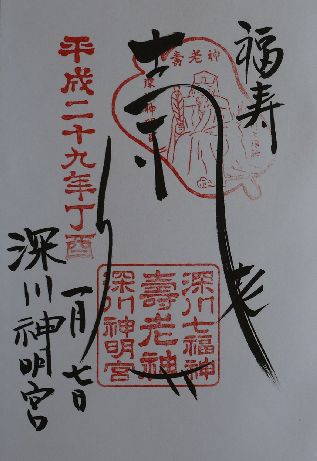 福寿
老
壽老神
深川七福神
壽老神
深川神明宮
平成二十九年丁酉
一月七日
深川神明宮